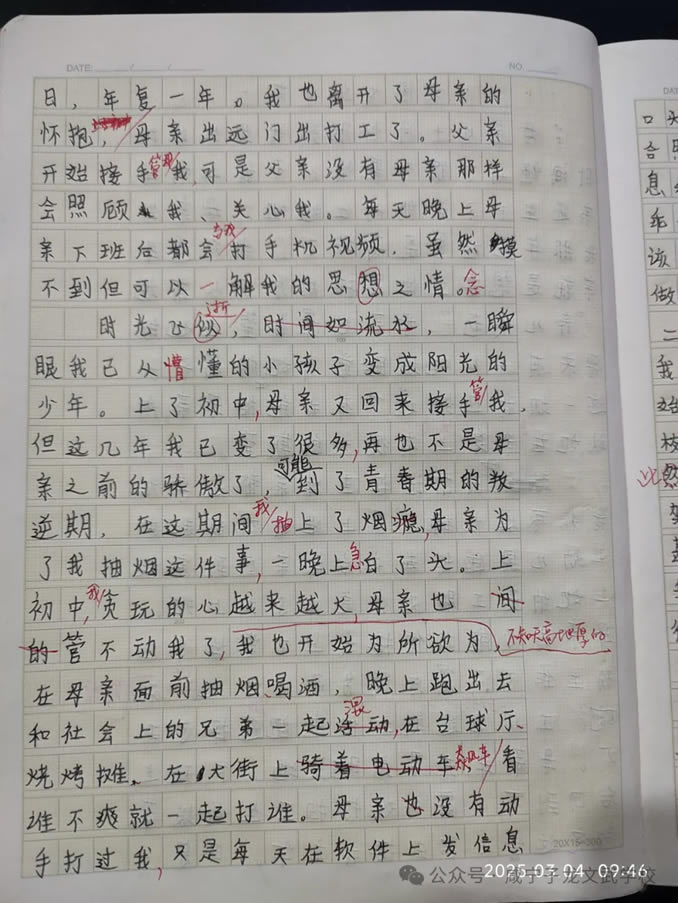 DATE: / /
NO.
日，年复一年。我也离开了母亲的
怀抱，母亲出远门出打工了。父亲
开始接手管理我，可是父亲没有母亲那样
会照顾我、关心我。每天晚上母
亲下班后都会与我打手机视频，虽然摸
不到但可以一解我的思想之情。念
时光飞似逝，时间如流水，一瞬
眼我已从懵懂的小孩子变成阳光的
少年。上了初中，母亲又回来接手管我，
但这几年我已变了很多，再也不是母
亲之前的骄傲了，可能到了青春期的叛
逆期，在这期间我抽上了烟瘾，母亲为
了我抽烟这件事，一晚上急白了头。上
初中，我贪玩的心越来越大，母亲也间
的管不动我了，我也开始为所欲为，不知天高地厚的
在母亲面前抽烟、喝酒，晚上跑出去
和社会上的兄弟一起活动，混在台球厅、
烧烤摊、在大街上骑着电动车飙车看
谁不爽就一起打谁。母亲也没有动
手打过我，只是每天在软件上发信息
20X15=300
2025-03-04 09:46
公众号 咸宁子龙文武学校
DAT
口
合
息
乖
该
做
二
我
始
枝
然